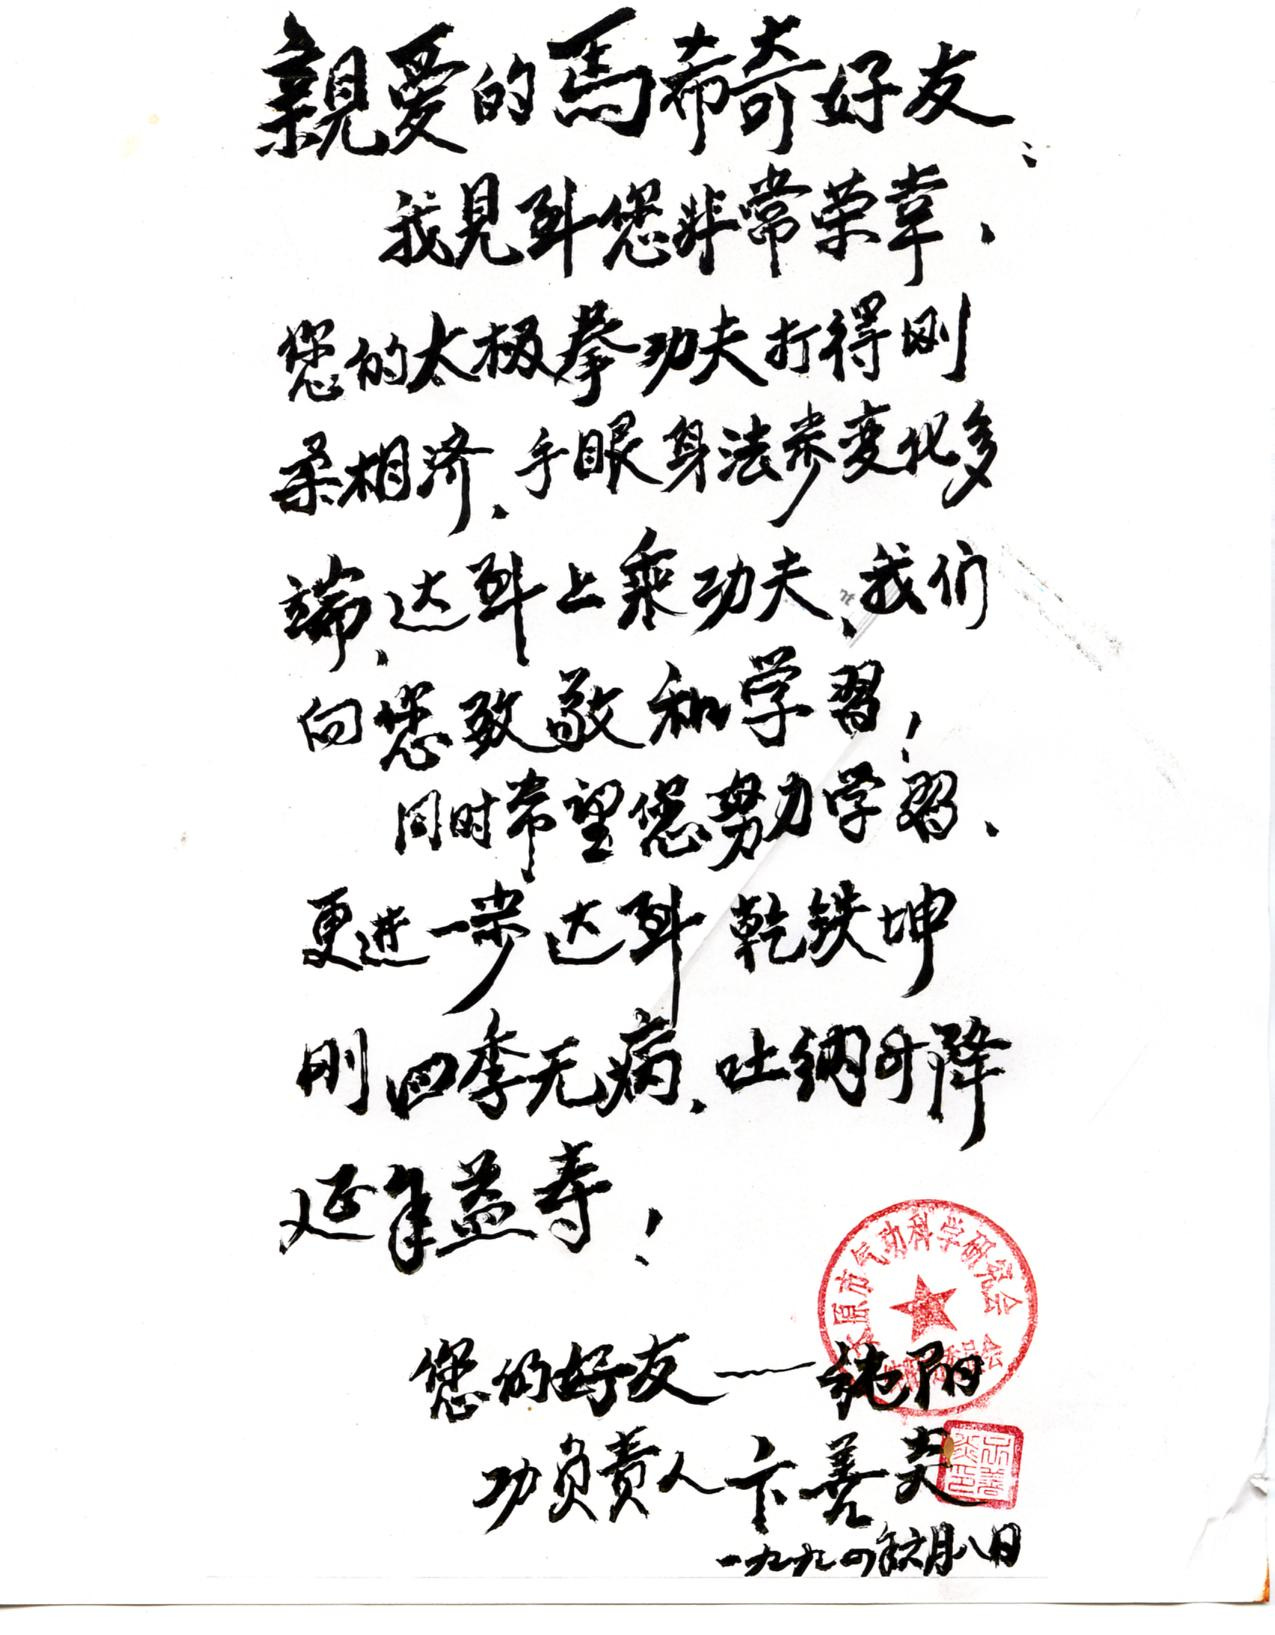 親爱的馬希奇好友：
我見到您非常荣幸、
您的太极拳功夫打得刚
柔相济、手眼身法步变化多
端、达到上乘功夫、我们
向您致敬和学習！
同时希望您努力学習、
更进一步达到乾铁坤
刚四季无病、吐纳升降
延年益寿！
您的好友——纯阳
功负责人卞善
一九九四年六月八日
太原市气功科学研究会